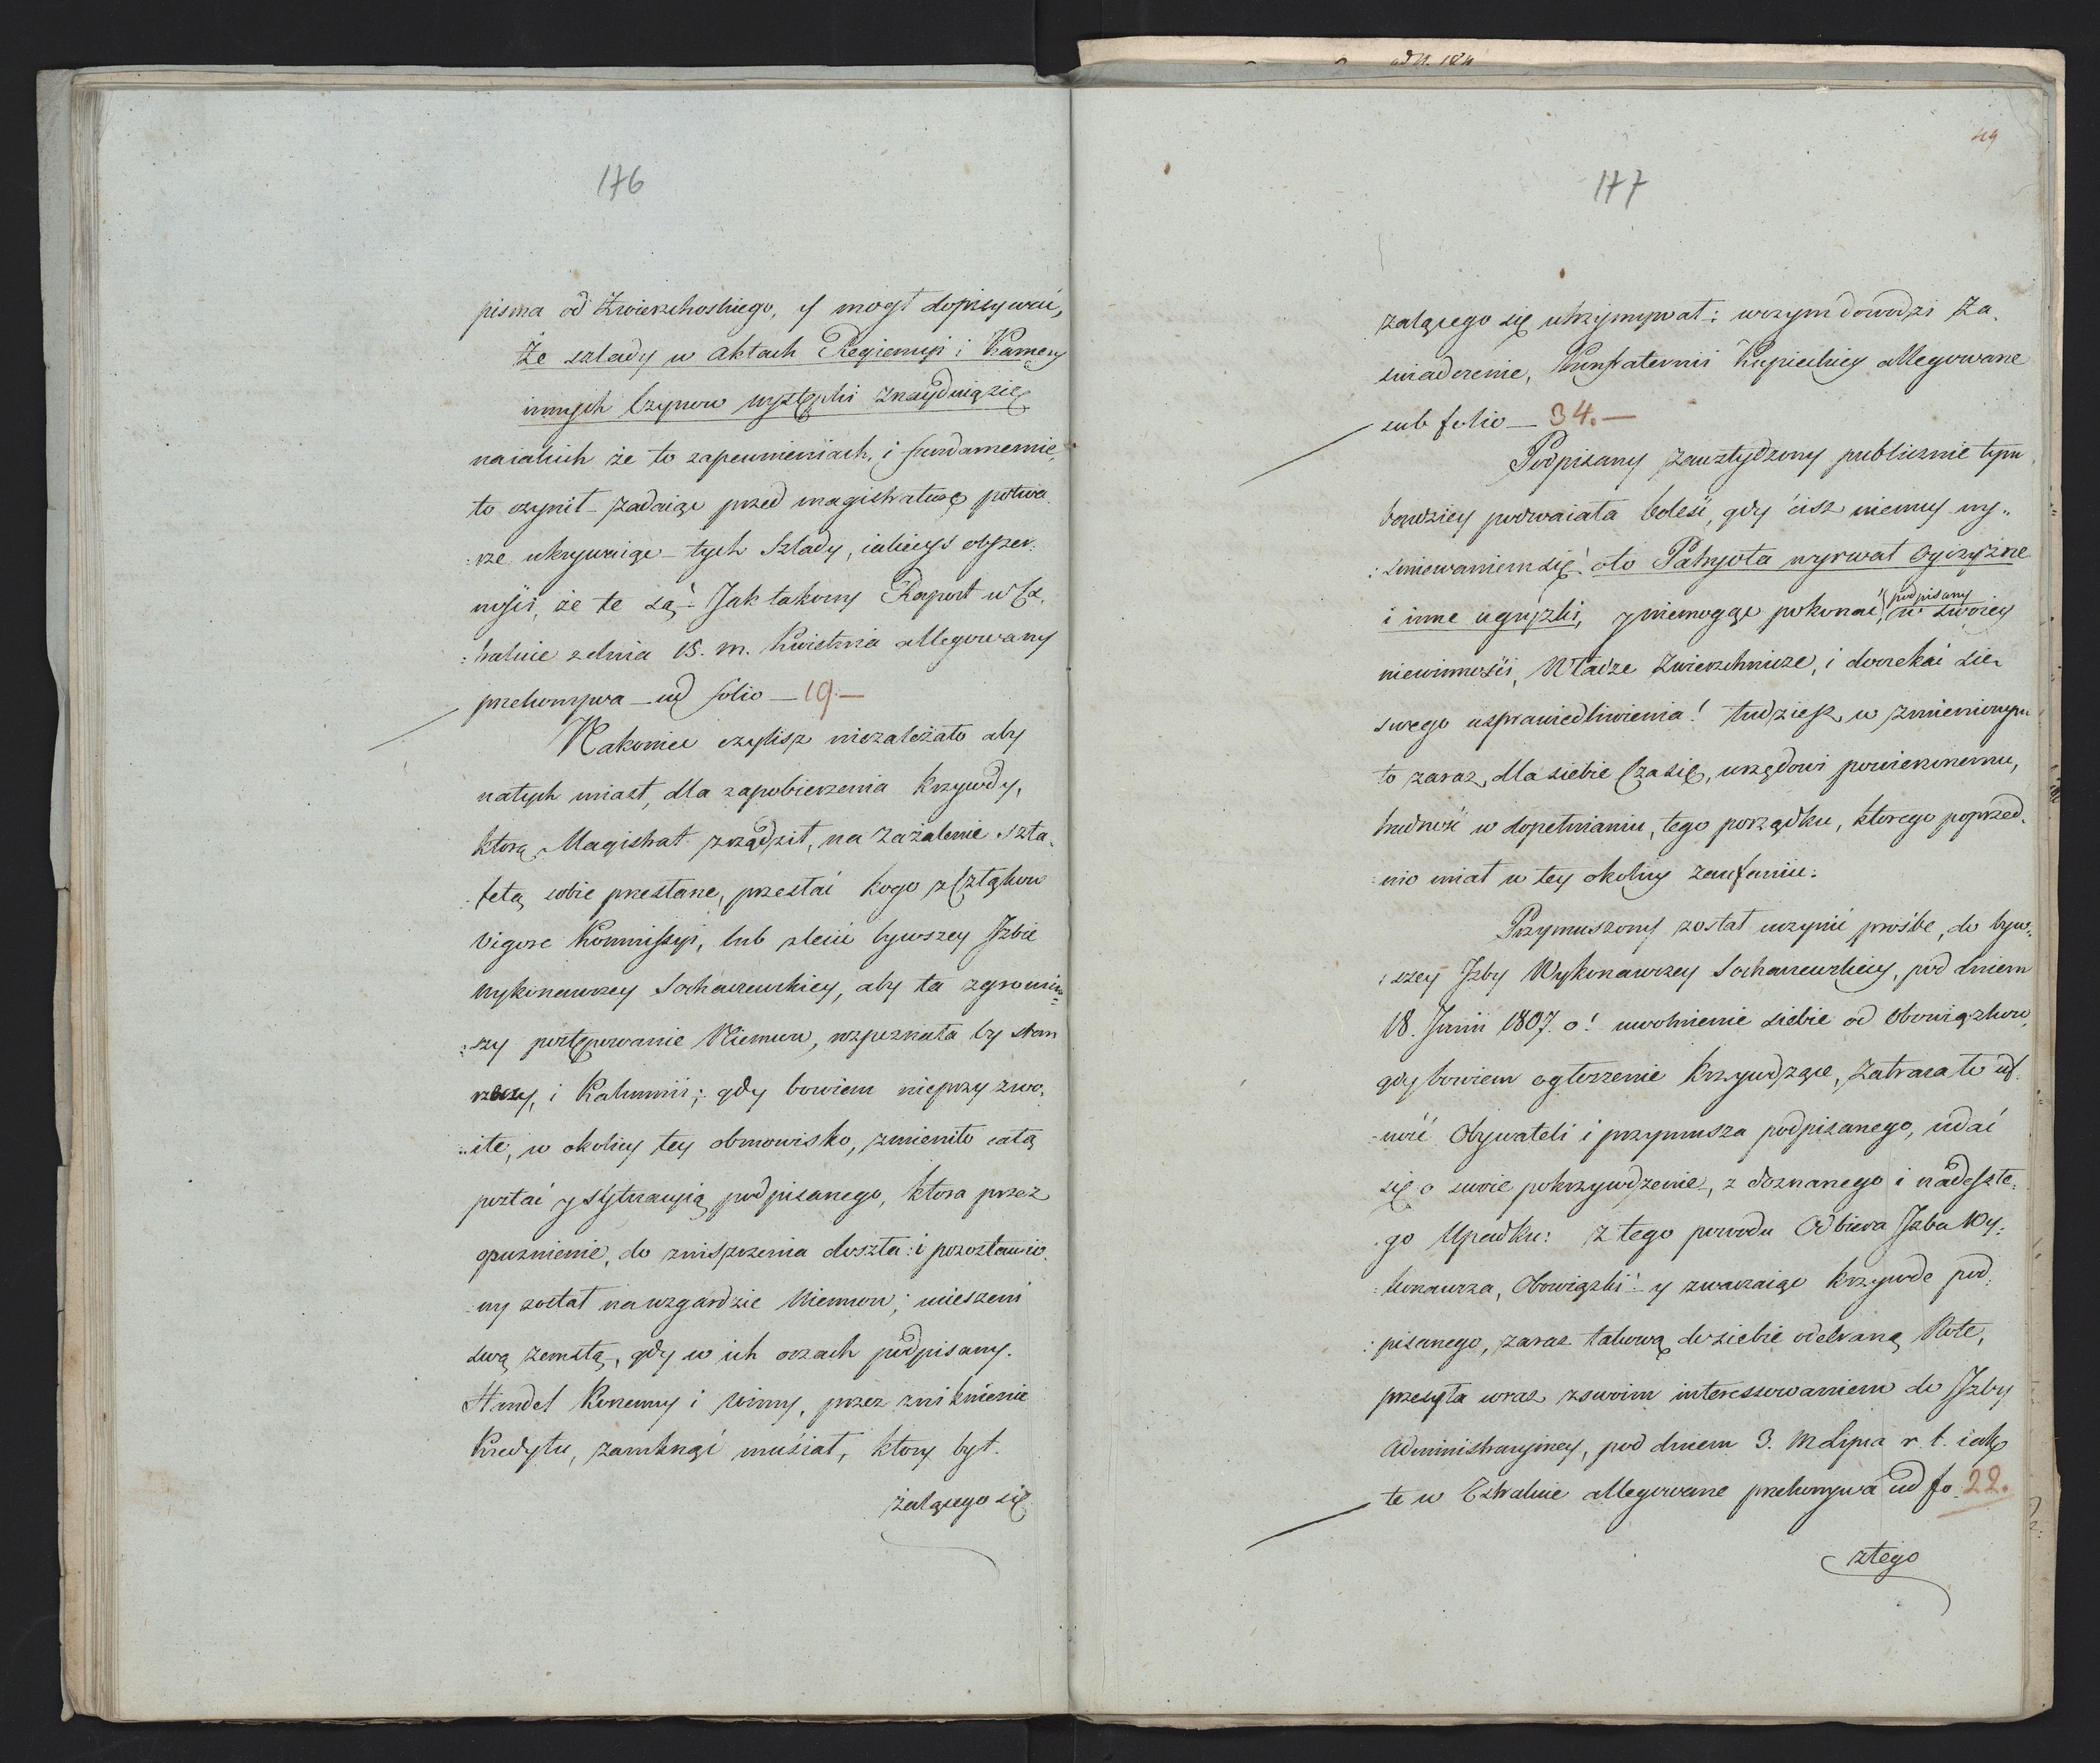 176
pisma od Zwierzchoskiego, y mogł dopisywać,
Że szlady w Aktach Regiencyi i Kamery
innych Czynow występki znayduią się
na iakich że to zapewnieniach, i fundamemcie,
to czynił zadaiąc przed magistraturę potwa-
:rze ukrywaiąc tych Szlady, iakieyś obszer:
ności, że te są: Jak takowy Raport w Ex.
:trakcie z dnia 15. m. Kwietnia allegowany
przekonywa ad folio 19.
Nakoniec czylisz niezależało aby
natych miast, dla zapobierzenia krzywdy,
ktorą Magistrat zrządził, na zażalenie szta-
:fetą sobie przesłane, przesłać kogo z Członkow
vigore Kommissyi, lub zlecić bywszey Jzbie
wykonawczey Sochaczewskiey, aby ta zgromiw=
:szy postępowanie Niemcow, rozpoznała by stan
rzeczy, i Kalumnii; gdy bowiem nieprzyzwo,
:ite, w okolicy tey obmowisko, zmieniło całą
postać y Sytuacyią podpisanego, ktora przez
opuznienie, do zniszczenia doszła: i pozostawio
:ny został na wzgardzie Niemcow; uieszeni
swą zemstą, gdy w ich oczach podpisany.
Handel Korzenny i winny, przez zniknienie
Kredytu, zamknąć musiał, ktory był.
żalącego się

ad N. 184
49
177
żalącego się utrzymywał: w czym dowodzi Za.
swiadczenie, Konfraternii Kupieckiey allegowane
sub folio 34.
Podpisany zawstydzony publicznie tym
bardziey podwaiała boleść, gdy cisz niemcy wy„
:smiewaniem się: oto Patryota wyrwał Oyczyznę
i inne ugryzki, y niemogąc pokonać, podpisany w swoiey
niewinności, Władze Zwierzchnicze, i doczekać się
swego usprawiedliwienia! tudziesz w zmienionym
to zaraz, dla siebie Czasie, urzędowi powierzonemu,
trudność w dopełnianiu, tego porządku, ktorego poprzed.
:nio miał w tey okolicy zaufaniu:
Przymuszony został uczynić prośbe, do byw„
:szey Jzby Wykonawczey Sochaczewskiey, pod dniem
18. Junii 1807. o! uwolnienie siebie od Obowiązkow,
gdy bowiem ogłoszenie Krzywdzące, zatracało uf.
:ność Obywateli i przymusza podpisanego, udać
się o swoie pokrzywdzenie, z doznanego i nadeszłe.
:go Upadku: z tego powodu Odbiera Jzba Wy:
:konawcza, Obowiązki: y zwarzaiąc krzywde pod:
:pisanego, zaraz takową do siebie odebraną Note,
przesyła wraz z swoim interessowaniem do Jzby
Administracyiney, pod dniem 3. M Lipca r. t. iak
te w Extrakcie allegowane przekonywa ad fo. 22.
z tego